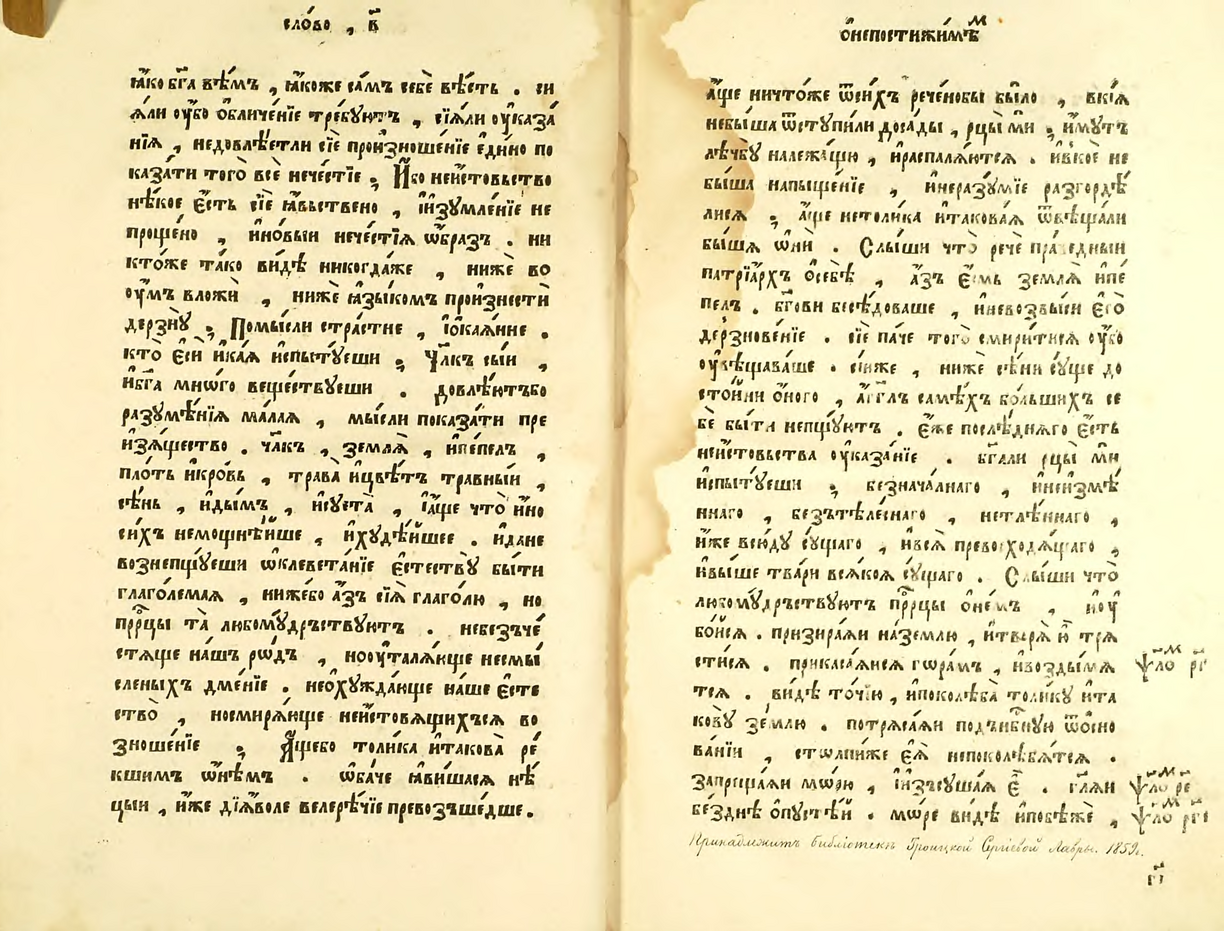 сло́во , в҃
ꙗ҆́ко бг҃а вѣ́мъ , ꙗ҆́коже са́мъ себѐ вѣ́сть . си
ꙗ҆́ли оу҆́бо ѻ҆бличе́нїе тре́буютъ , сїѧ́ли оу҆каза́
нїѧ , недовлѣ́етли сїѐ произноше́нїе є҆ди́но по
каза́ти того̀ всѐ нече́стїе ; И҆́бо неи́стовьство
нѣ́кое є҆́сть сїѐ ꙗ҆́вьствено , і҆и҆зꙋмле́нїе не
проще́но , и҆но́выи нече́стїѧ ѡ҆́бразъ . ни
кто́же та́ко ви́дѣ никогда́же , нижѐ во
оу҆́мъ вложѝ , нижѐ ꙗ҆зы́комъ произнестѝ
дерзнꙋ̀ ; Помы́сли стра́стне , і҆ѻ҆каѧ́нне .
кто̀ є҆сѝ и҆ка́ѧ и҆спытꙋ́еши ; Чл҃къ сы́и ,
и҆бг҃а мно́го веществꙋ́еши . довлѣ́ютъбо
разꙋмѣ́нїѧ ма́лаѧ , мы́сли показа́ти пре
и҆зѧ́щество . чл҃къ , землѧ̀ , и҆пе́пелъ ,
пло́ть и҆кро́вь , трава̀ и҆цвѣ́тъ травны́и ,
сѣ́нь , и҆ды́мъ , и҆сꙋета̀ , і҆а҆́ще что̀ и҆́но
си́хъ немощнѣ́йше , и҆хꙋдѣ́йшее . и҆да́не
возне́пщꙋеши ѡ҆клевета́нїе є҆стествꙋ̀ бы́ти
глаго́лемаѧ , ниже́бо а҆́зъ сїѧ̀ глаго́лю , но
прⷪ҇рцы та̀ любомꙋ́дръствꙋютъ . небезъче́
стѧще на́шъ ро́дъ , нооу҆талѧ́юще несмы́
сленыхъ дме́нїе . неѻ҆хꙋжда́юще на́ше є҆сте
ство̀ , носмирѧ́юще неи́стовѧщихъсѧ во
зноше́нїе ; А҆́щебо толи́ка и҆такова̀ ре́
кшимъ ѡ҆не́мъ . ѻ҆ба́че ꙗ҆ви́шасѧ нѣ́
цыи , и҆́же дїѧ́воле велерѣ́чїе превозъше́дше .
ѻ҆непостижи́мѣⷨ
а҆́ще ничто́же ѿси́хъ рече́нобы бы́ло , вкі́ѧ
небы́ша ѿстꙋпи́ли доса́ды , рцы́ ми ; и҆́мꙋтъ
лѣ́чбꙋ належа́щꙋю , и҆распалѧ́ютсѧ . и҆вко́е не
бы́ша напыще́нїе , и҆неразꙋ́мїе разгордѣ́
лисѧ ; а҆́ще нетоли́ка и҆такова́ѧ ѿвѣща́ли
бы́шѧ ѻ҆нѝ . Слы́ши что̀ речѐ пра́ведныи
патрїа́рхъ ѻ҆себѣ̀ , а҆́зъ є҆́смь землѧ̀ и҆пе́
пелъ . бг҃ови бесѣ́доваше , и҆невозвы́си є҆го̀
дерзнове́нїе . сїѐ па́че того̀ смири́тисѧ оу҆́бо
оу҆вѣщава́ше . сїи́же , нижѐ сѣ́ни сꙋ́ще до
сто́йни ѻ҆́ного , а҆́гг҃лъ самѣ́хъ бо́льшихъ се
бѐ бы́ти непщꙋ́ютъ . є҆́же послѣ́днѧго є҆́сть
неи́стовьства оу҆каза́нїе . бг҃а́ли рцы́ ми
и҆спытꙋ́еши ; безнача́лнаго , и҆неизмѣ́
ннаго , безътѣле́снаго , нетлѣ́ннаго ,
и҆́же всю́дꙋ сꙋ́щаго , и҆всѧ̀ превосходѧ́щаго ,
и҆вы́ше тва́ри всѧ́коѧ сꙋ́щаго . Слы́ши что̀
любомꙋ́дръствꙋютъ прⷪ҇рцы ѻ҆не́мъ , и҆оу҆
бо́йсѧ . призира́ѧи назе́млю , и҆творѧ̀ ю҆̀ трѧ
сти́сѧ . прикаса́ѧисѧ гора́мъ , и҆воздымѧ́
тсѧ . ви́дѣ то́чїю , и҆поколеба̀ толи́кꙋ и҆та
ковꙋ̀ зе́млю . потрѧса́ѧи поднбⷭ҇нꙋю ѿѻ҆сно
ва́нїи , столпи́же є҆ѧ̀ непоколѣ́бѧтсѧ .
запреща́ѧи мо́рю , і҆изъсꙋша́ѧ є҆̀ . гл҃ѧи
бе́зднѣ ѻ҆пꙋстѣ́й . мо́ре ви́дѣ и҆побѣжѐ ,
Принадлежитъ библіотекѣ Троицкой Сергіевой Лавры. 1859г.
г҃і